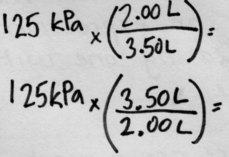 125 kPa × (2.00 L / 3.50L) =
125kPa × (3.50L / 2.00L) =